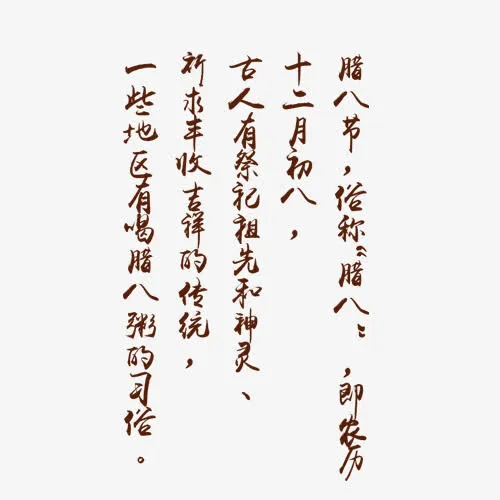 腊八节，俗称“腊八”，即农历
十二月初八，
古人有祭祀祖先和神灵、
祈求丰收吉祥的传统，
一些地区有喝腊八粥的习俗。